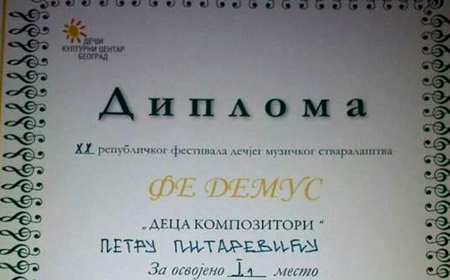 ДЕЧЈИ
КУЛТУРНИ ЦЕНТАР
БЕОГРАД
Диплома
XX републичког фестивала дечјег музичког стваралаштва
ФЕ ДЕМУС
„ДЕЦА КОМПОЗИТОРИ“
ПЕТРУ ПИТАРЕВИЋУ
За освојено I1 место